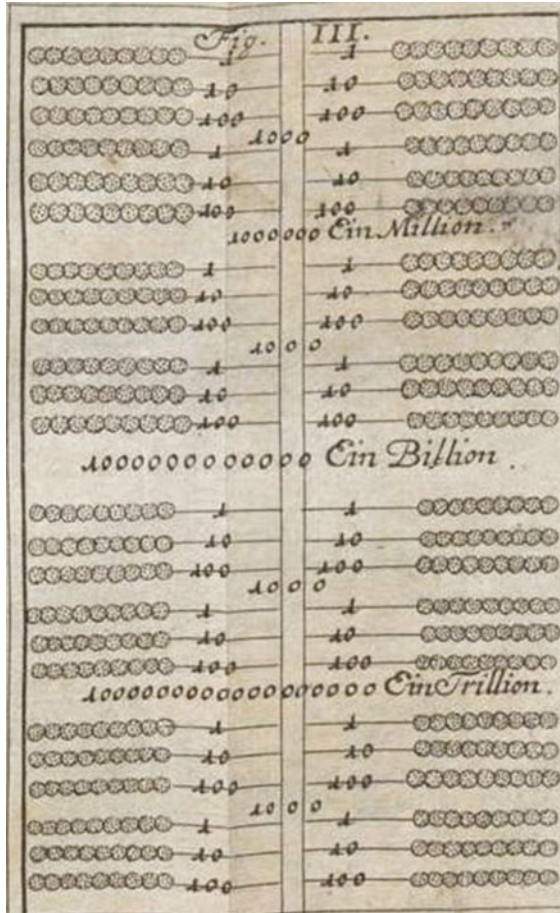 Fig. III.
1 1
10 10
100 100
1000
1 1
10 10
100 100
1000000 Ein Million.
1 1
10 10
100 100
1000
1 1
10 10
100 100
1000000000000 Ein Billion.
1 1
10 10
100 100
1000
1 1
10 10
100 100
1000000000000000000 Ein Trillion.
1 1
10 10
100 100
1000
1 1
10 10
100 100